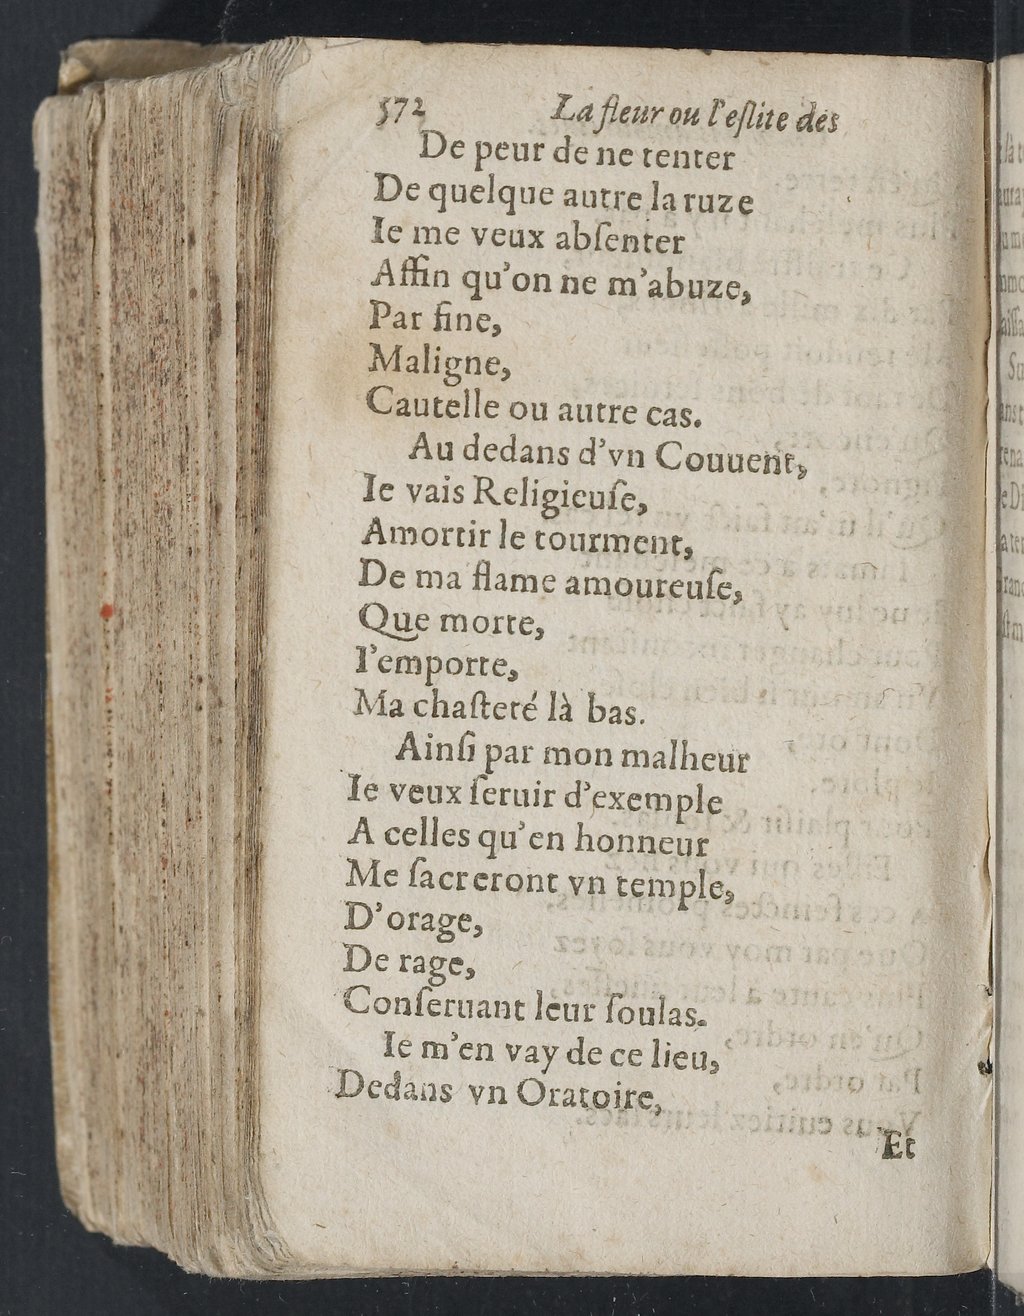 572 La fleur ou l'eſlite des
De peur de ne tenter
De quelque autre la ruze
Ie me veux abſenter
Affin qu'on ne m'abuze,
Par fine,
Maligne,
Cautelle ou autre cas.
Au dedans d'vn Couuent,
Ie vais Religieuſe,
Amortir le tourment,
De ma flame amoureuſe,
Que morte,
I'emporte,
Ma chaſteté là bas.
Ainſi par mon malheur
Ie veux ſeruir d'exemple
A celles qu'en honneur
Me ſacreront vn temple,
D'orage,
De rage,
Conſeruant leur ſoulas.
Ie m'en vay de ce lieu,
Dedans vn Oratoire,
Et